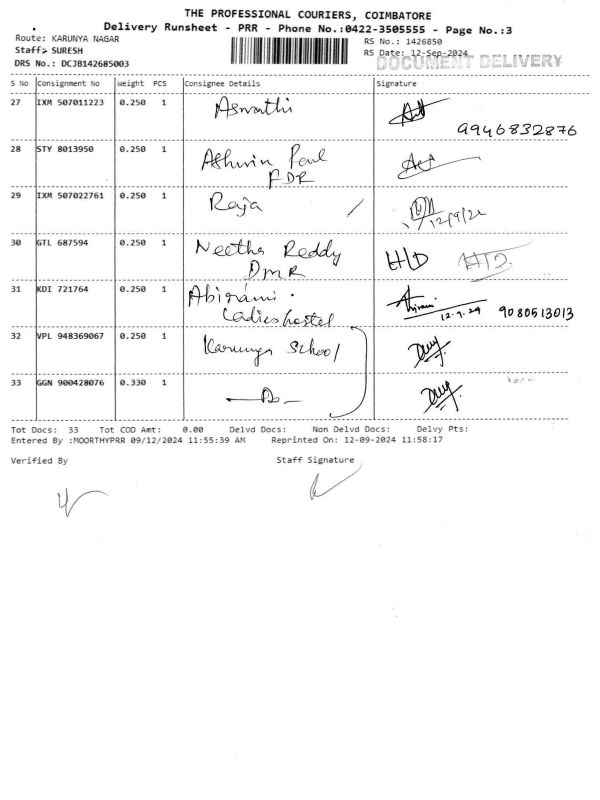 THE PROFESSIONAL COURIERS, COIMBATORE
Delivery Runsheet - PRR - Phone No.:0422-3505555 - Page No.:3
Route: KARUNYA NAGAR
RS No.: 1426850
Staff: SURESH
RS Date: 12-Sep-2024
DRS No.: DCJB142685003
DOCUMENT DELIVERY
S No Consignment No Weight PCS Consignee Details Signature
27 IXM 507011223 0.250 1 Aswathi
9946832876
28 STY 8013950 0.250 1 Ashwin Paul
FDR
29 IXM 507022761 0.250 1 Raja
12/9/24
30 GTL 687594 0.250 1 Neetha Reddy H/D H/D.
DMR
31 KDI 721764 0.250 1 Abirami. Abirami
Ladies hostel 12.9.24 9080513013
32 VPL 948369067 0.250 1 Karunya School
33 GGN 900428076 0.330 1 —Do—
Tot Docs: 33 Tot COD Amt: 0.00 Delvd Docs: Non Delvd Docs: Delvy Pts:
Entered By :MOORTHYPRR 09/12/2024 11:55:39 AM Reprinted On: 12-09-2024 11:58:17
Verified By Staff Signature